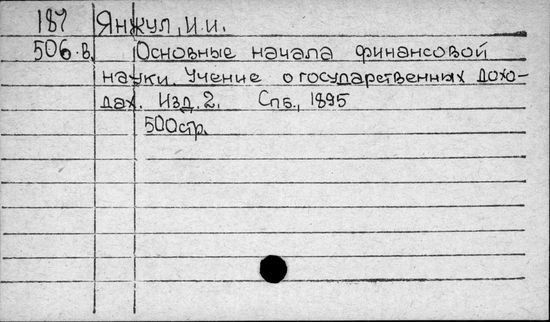 187 Янжул, И.И.
506.в. Основные начала финансовой
науки. Учение о государственных дохо-
дах. Изд. 2. Спб., 1895
500стр.